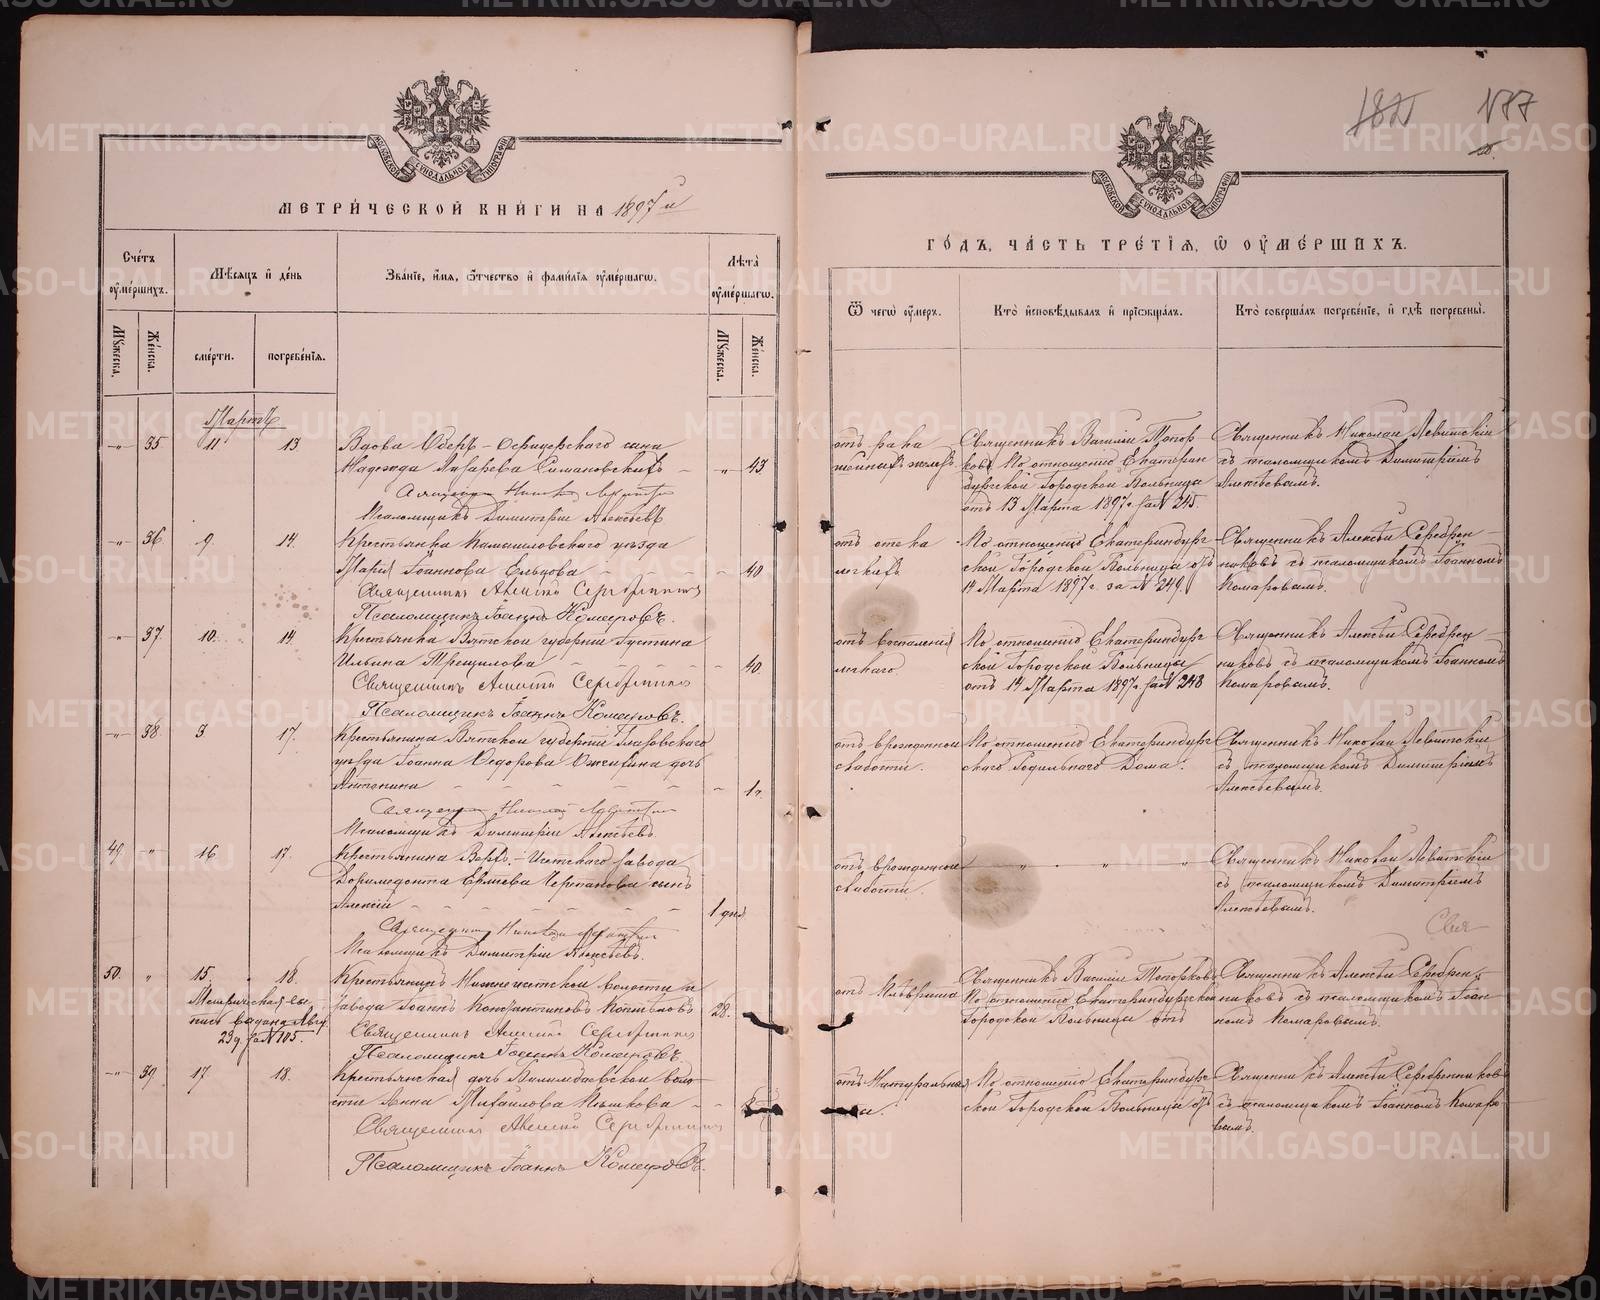 МЕТРИЧЕСКОЙ КНИГИ НА 1897 й
Счетъ умершихъ.
Мѣсяцъ и день
Званіе, имя, отчество и фамилія умершаго.
Лѣта умершаго.
Мужеска.
Женска.
смерти.
погребенія.
Мужеска.
Женска.
Мартъ
-"- 35 11 13 Вдова Оберъ-Офицерскаго сына
Надежда Лазарева Симановскихъ - " - 43
Псаломщикъ Димитрій Алексѣевъ
-"- 36 9 14. Крестьянка Камышловскаго уѣзда
Марія Іоаннова Ельцова - - - 40
Священникъ Алексѣй Серебренниковъ
Псаломщикъ Іоаннъ Комаровъ.
-"- 37 10. 14 Крестьянка Вятской губерніи Устина
Ильина Трещилова - - - 40.
Священникъ Алексѣй Серебренниковъ
Псаломщикъ Іоаннъ Комаровъ.
-"- 38 3 17. Крестьянина Вятской губерніи Глазовскаго
уѣзда Іоанна Ѳедорова дочь
Антонина - - - 1 ч.
Священникъ Николай Левитскій
Псаломщикъ Димитрій Алексѣевъ.
49 -"- 16 17. Крестьянина Верхъ-Исетскаго завода
Доримедонта Черепанова сынъ
Алексій - - - 1 дня
Священникъ Николай Левитскій
Псаломщикъ Димитрій Алексѣевъ.
50. " 15. 18. Крестьянинъ Нижнеисетской волости и
завода Іоаннъ Константиновъ Копыловъ 28.
Метрическая вы-
пись выдана Авг.
29 д. за № 705.
Священникъ Алексѣй Серебренниковъ
Псаломщикъ Іоаннъ Комаровъ.
-"- 39 17 18. Крестьянская дочь Билимбаевской воло-
сти Анна Михаилова Пьшкова - -
Священникъ Алексѣй Серебренниковъ
Псаломщикъ Іоаннъ Комаровъ.
187
ГОДЪ, ЧАСТЬ ТРЕТІЯ, Ѿ УМЕРШИХЪ.
Ѿ чегѡ умеръ.
Кто исповѣдывалъ и пріобщалъ.
Кто совершалъ погребеніе, и гдѣ погребены.
отъ рака
Священникъ Василій Топор-
ковъ По отношенію Екатерин
бургской Городской Больницы
отъ 13 Марта 1897 г. за № 245.
Священникъ Николай Левитскій
съ псаломщикомъ Димитріемъ
Алексѣевымъ.
отъ отека
легкихъ
По отношенію Екатеринбург
ской Городской Больницы отъ
14 Марта 1897 г. за № 249.
Священникъ Алексѣй Серебрен-
никовъ съ псаломщикомъ Іоанномъ
Комаровымъ.
отъ воспаленія
легкаго.
По отношенію Екатеринбург
ской Городской Больницы
отъ 14 Марта 1897 г. за № 248
Священникъ Алексѣй Серебрен-
никовъ съ псаломщикомъ Іоанномъ
Комаровымъ.
отъ врожденной
слабости.
По отношенію Екатеринбург
скаго Родильнаго Дома.
Священникъ Николай Левитскій
съ псаломщикомъ Димитріемъ
Алексѣевымъ.
отъ врожденной
слабости.
" " "
Священникъ Николай Левитскій
съ псаломщикомъ Димитріемъ
Алексѣевымъ.
Свя
отъ Плеврита
Священникъ Василій Топорковъ
По отношенію Екатеринбургской
Городской Больницы отъ
Священникъ Алексѣй Серебрен-
никовъ съ псаломщикомъ Іоан-
номъ Комаровымъ.
отъ Натуральной
По отношенію Екатеринбург
ской Городской Больницы отъ
Священникъ Алексѣй Серебренниковъ
съ псаломщикомъ Іоанномъ Комаро-
вымъ.
METRIKI.GASO-URAL.RU